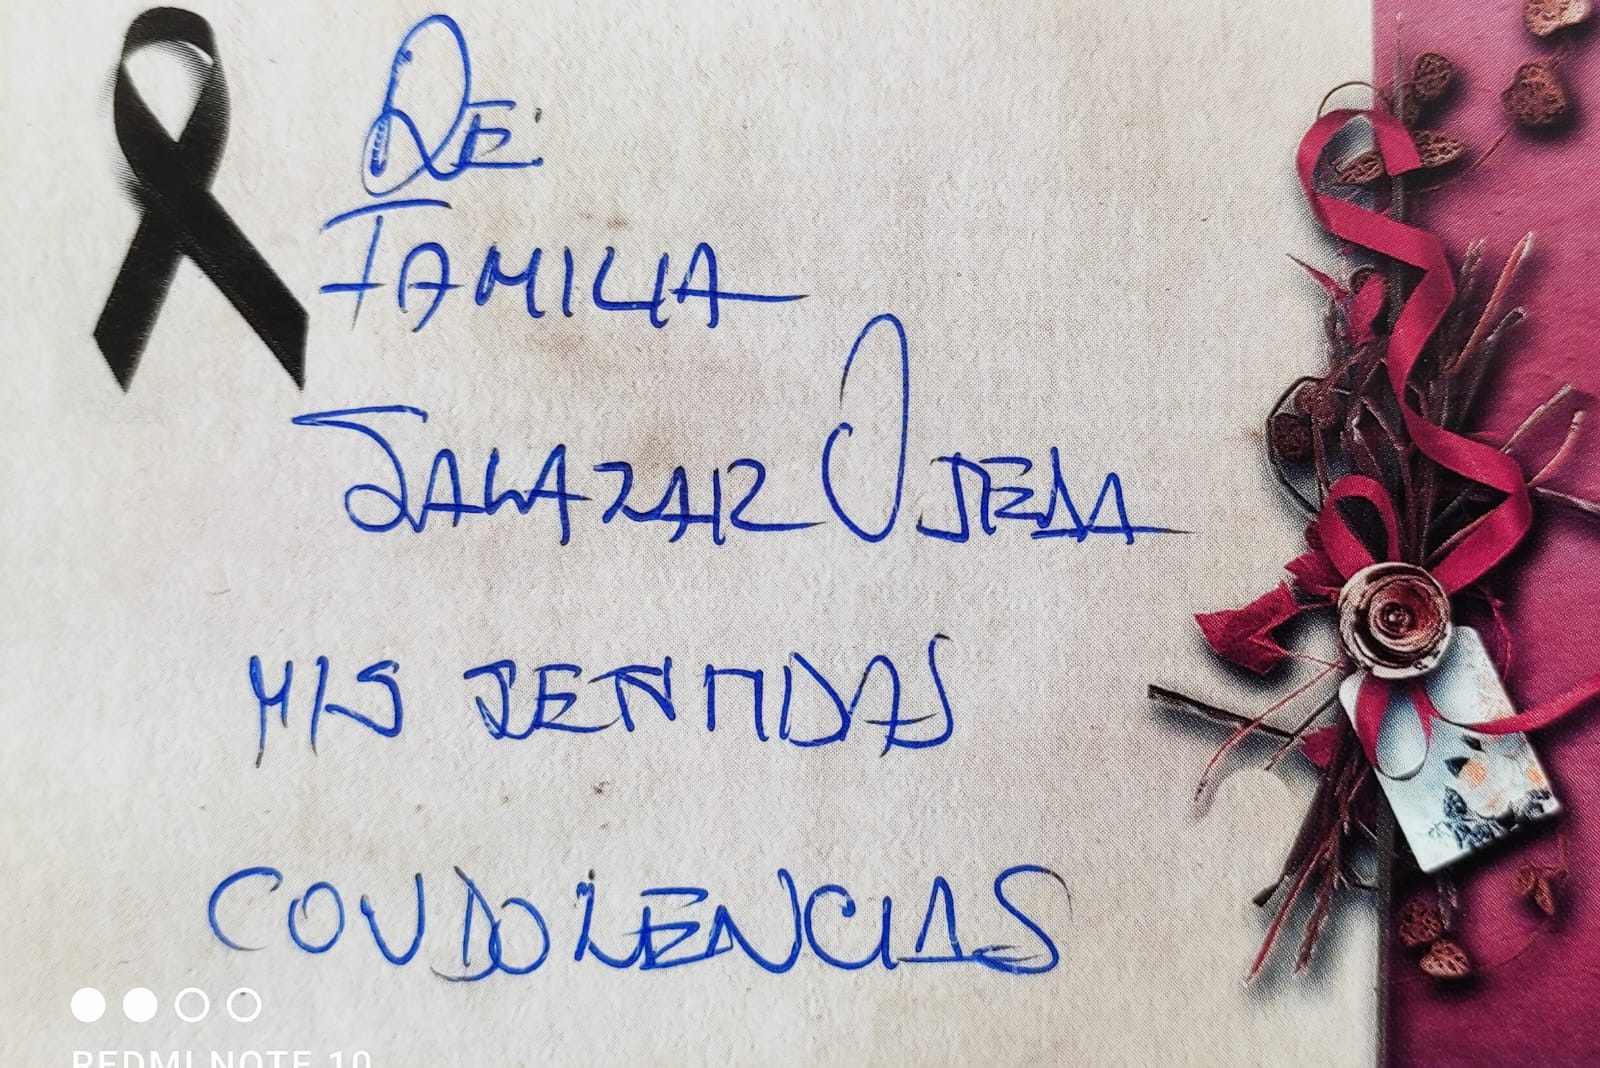 De:
FAMILIA
SALAZAR OJEDA
MIS SENTIDAS
CONDOLENCIAS
REDMI NOTE 10